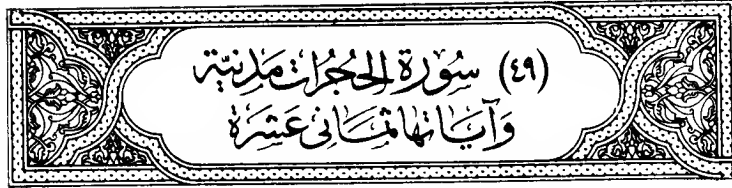 (٤٩) سُورَة الحُجُرات مَدنيَّة
وَآيَاتها ثمَانى عَشَرَة